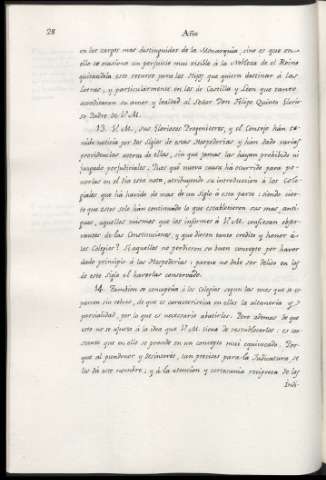 28
Año
en los cargos mas distinguidos de la Monarquia; sino es que en
ello se ocasiona un perjuicio mui visible à la Nobleza de el Reino
quitandola este recurso para los Hijos que quiera destinar à las
Letras, y particularmente en las de Castilla y Leon que tanto
acreditaron su amor y lealtad al Señor Don Felipe Quinto Glorio
so Padre de V. M.
13. V. M., sus Gloriosos Progenitores, y el Consejo han te-
nido noticia por dos siglos de estas Hospederias, y han dado varias
providencias acerca de ellas, sin que jamas las hayan prohibido ni
juzgado perjudiciales. Pues qué nueva causa ha ocurrido para po-
nerlas en el dia este nom, atribuyendo su introduccion à los Cole-
giales que ha havido de mas de un siglo à esta parte: siendo cier-
to que estos solo han continuado lo que establecieron sus mas anti-
guos, aquellos mismos que los informes à V. M. confiesan obser-
vantes de las Constituciones, y que dieron tanto credito y honor à
los Colegios? Si aquellos no perdieron su buen concepto por haver
dado principio à las Hospederias: parece no debe ser delito en los
de este siglo el haverlas conservado.
14. Tambien se conceptua à los Colegios segun las voces que se es
parcen sin rebozo, de que es caracteristica en ellos la altaneria y
parcialidad, por lo que es necesario abatirlos. Pero ademas de que
esto no se ajusta à la idea que V. M. tiene de restablecerlos: es con
stante que en ello se procede en un concepto mui equivocado. Por-
que al pundonor y desinteres, tan precisos para la Judicatura se
les dà este nombre; y à la atencion y cortesania reciproca de los
Indi-